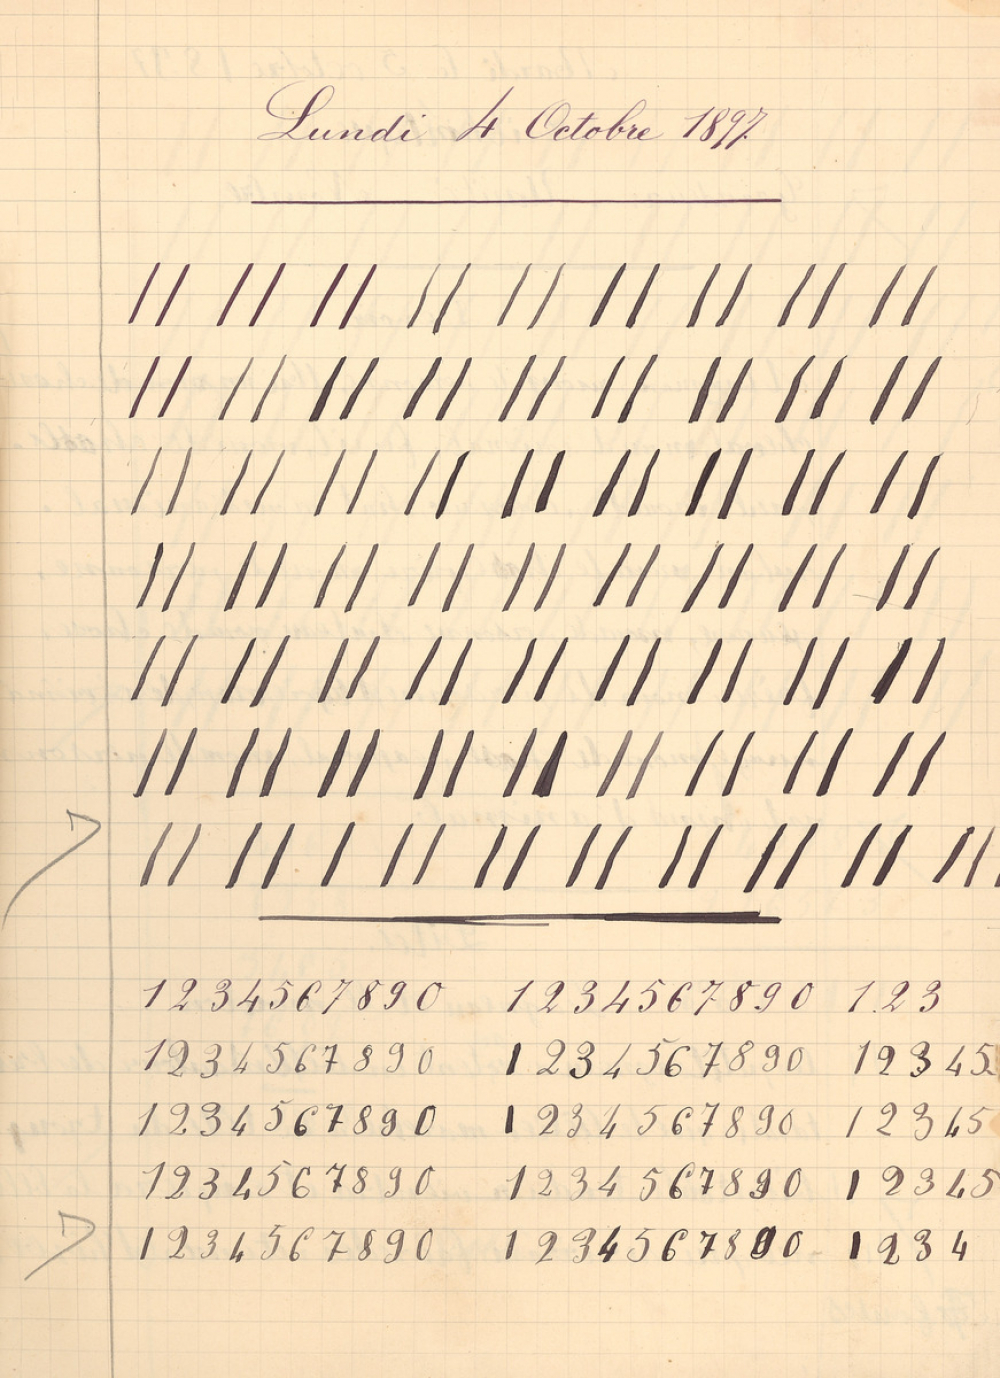 Lundi 4 Octobre 1897
1 2 3 4 5 6 7 8 9 0 1 2 3 4 5 6 7 8 9 0 1 2 3
1 2 3 4 5 6 7 8 9 0 1 2 3 4 5 6 7 8 9 0 1 2 3 4 5
1 2 3 4 5 6 7 8 9 0 1 2 3 4 5 6 7 8 9 0 1 2 3 4 5
1 2 3 4 5 6 7 8 9 0 1 2 3 4 5 6 7 8 9 0 1 2 3 4 5
1 2 3 4 5 6 7 8 9 0 1 2 3 4 5 6 7 8 9 0 1 2 3 4